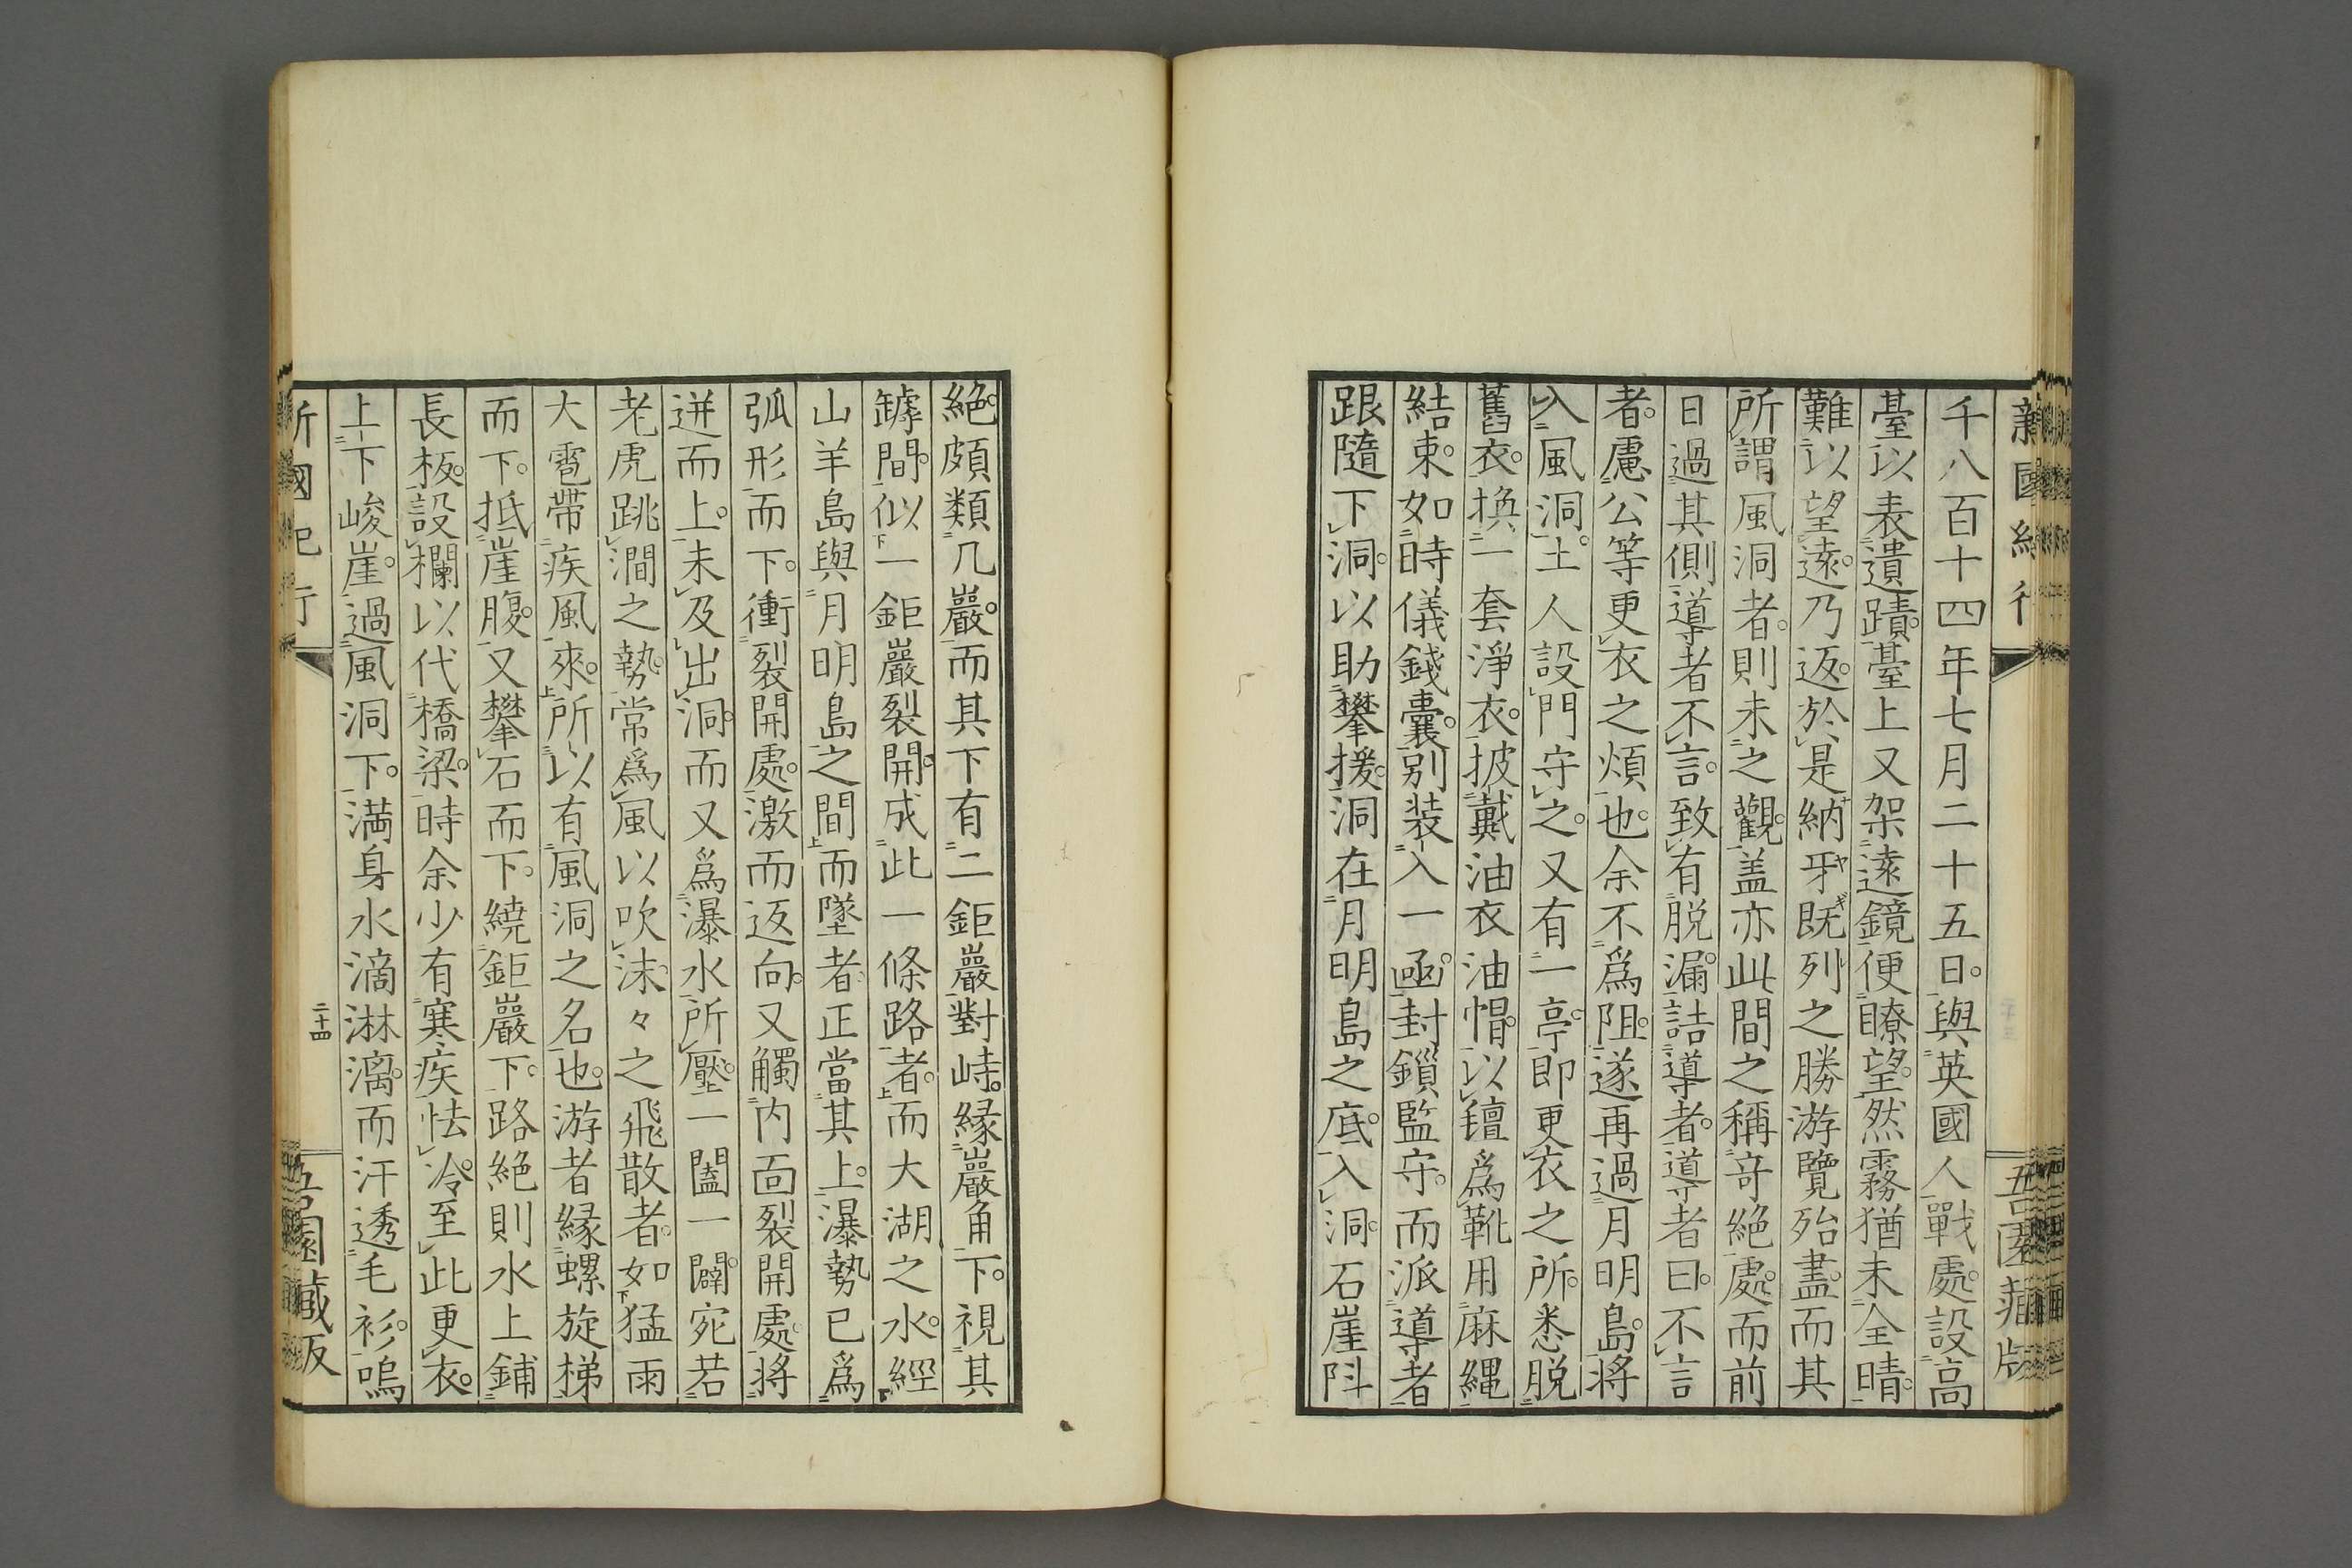 新國紀行
吾園藏版
千八百十四年七月二十五日。與英國人戰處。設高
臺以表遺蹟。臺上又架遠鏡便瞭望。然霧猶未全晴。
難以望遠。乃返。於是納牙既列之勝游覽殆盡。而其
所謂風洞者。則未之觀。盖亦此間之稱竒絶處。而前
日過其側導者不言。致有脱漏。詰導者。導者曰。不言
者。慮公等更衣之煩也。余不爲阻。遂再過月明島。將
入風洞。土人設門守之。又有一亭。即更衣之所。悉脱
舊衣。換一套淨衣。披戴油衣油帽。以氊爲靴用麻縄
結束。如時儀錢囊。別装入一函。封鎻監守。而派導者
跟隨下洞。以助攀援。洞在月明島之底。入洞。石崖阧
絶。頗類几巖。而其下有二鉅巖對峙。縁巖角下。視其
罅間。似一鉅巖裂開。成此一條路者。而大湖之水。經
山羊島與月明島之間而墜者。正當其上。瀑勢已爲
弧形而下。衝裂開處。激而返向。又觸内面裂開處。將
迸而上。未及出洞。而又爲瀑水所壓。一闔一闢。宛若
老虎跳澗之勢。常爲風以吹沫々之飛散者。如猛雨
大雹帶疾風來。所以有風洞之名也。游者縁螺旋梯
而下。抵崖腹。又攀石而下。繞鉅巖下。路絶則水上鋪
長板。設欄以代橋梁。時余少有寒疾怯冷。至此更衣。
上下峻崖。過風洞下。満身水滴淋漓。而汗透毛衫。嗚
新國紀行
二十四
吾園藏版